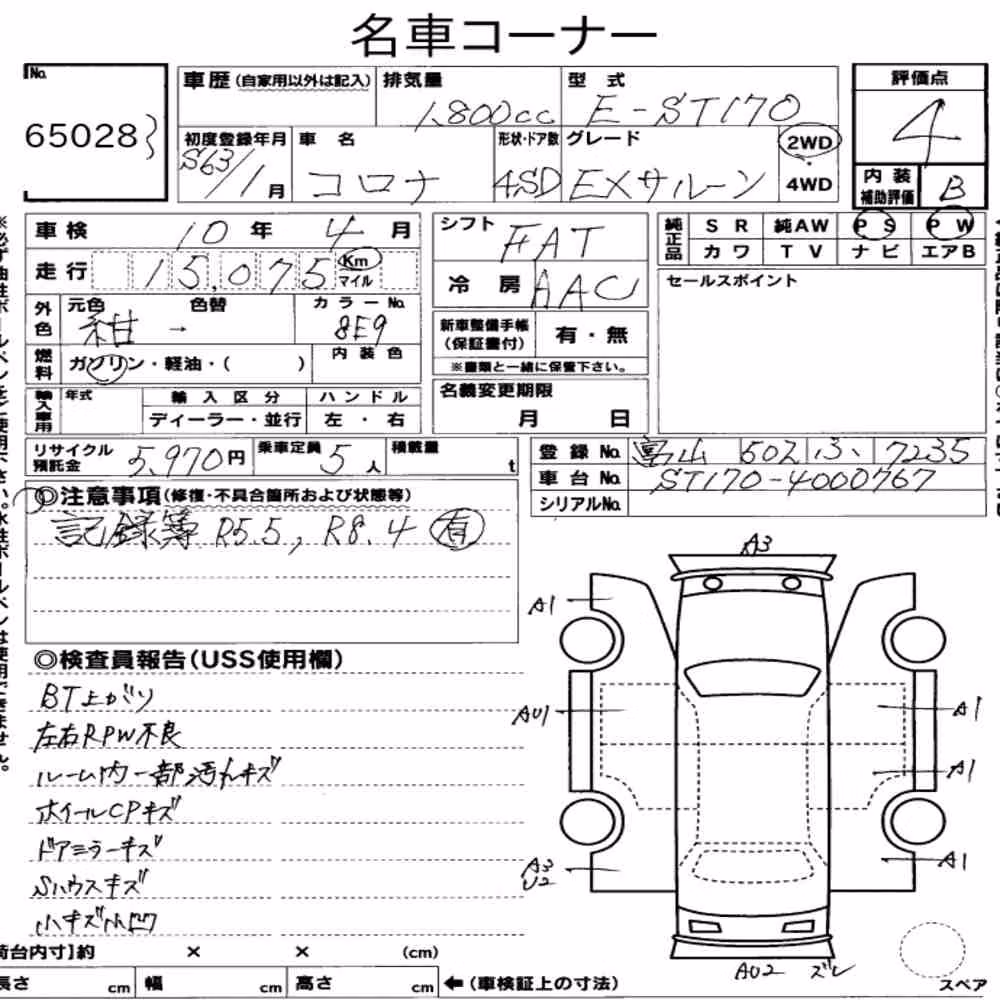 名車コーナー
No.
65028
車歴(自家用以外は記入)
排気量
1,800cc
型式
E-ST170
評価点
4
初度登録年月
S63/1月
車名
コロナ
形状・ドア数
4SD
グレード
EXサルーン
2WD
・
4WD
内装
補助評価
B
車検 10年 4月
走行 15,075 Km
マイル
シフト
FAT
冷房
AAC
純正品
SR 純AW PS PW
カワ TV ナビ エアB
外色
元色 色替 カラーNo.
紺 → 8E9
セールスポイント
燃料
ガソリン・軽油・( )
内装色
新車整備手帳
(保証書付)
有・無
※書類と一緒に保管下さい。
輸入車用
年式
輸入区分
ディーラー・並行
ハンドル
左・右
名義変更期限
月 日
リサイクル
預託金
5,970円
乗車定員 5人
積載量 t
登録No. 富山 502 ふ 7235
車台No. ST170-4000767
シリアルNo.
◎注意事項(修復・不具合箇所および状態等)
記録簿 R5.5, R8.4 有
◎検査員報告(USS使用欄)
BT上がり
左右RPW不良
ルーム内一部汚れキズ
ホイールCPキズ
ドアミラーキズ
Sハウスキズ
小キズ小凹
A3
A1
AU1
A3
U2
A1
A1
A1
AU2 ズレ
スペア
荷台内寸】約 × × (cm)
長さ cm 幅 cm 高さ cm ←(車検証上の寸法)